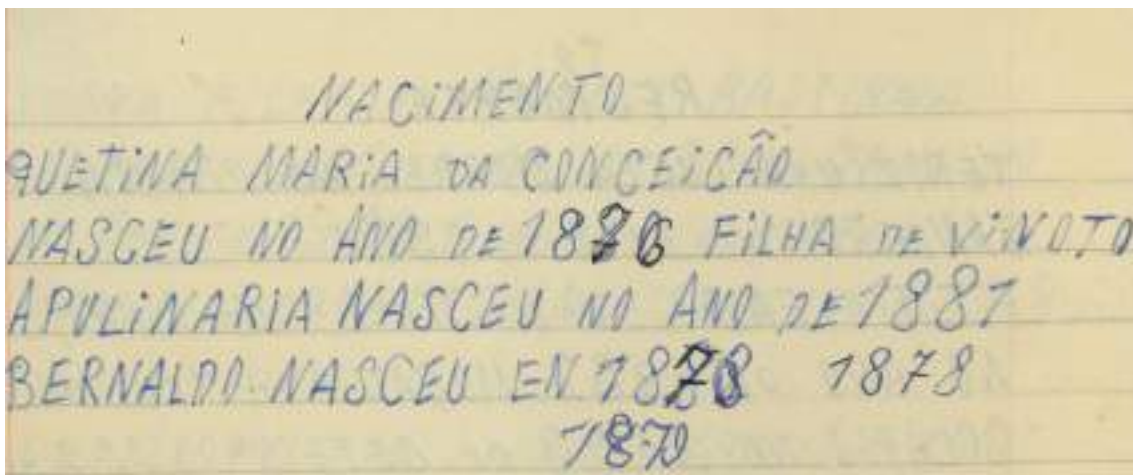 NACiMENTO
QUETiNA MARiA DA CONCEiCÂO
NASCEU NO ÂNO DE 1876 FiLHA DE ViNOTO
APULiNARiA NASCEU NO ANO DE 1881
BERNALDO NASCEU EN 1878 1878
1879